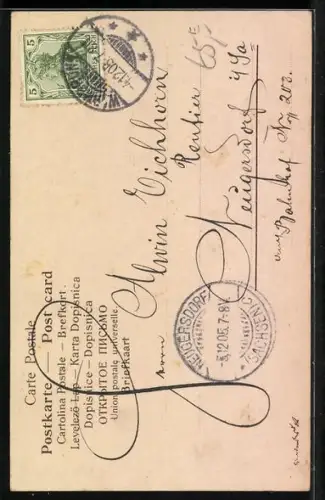 Carte Postale
Postkarte — Post card
Cartolina Postale — Brefkort
Levelező-Lap — Karta Dopisnica
Dopisnice — Dopisnica
ОТКРЫТОЕ ПИСЬМО
Union postale universelle
Briefkaart
5 5
4.12.05
Herrn Alwin Eichhorn
Rentier
Neugersdorf i/Sa
Bahnhof Nr 203.
65
NEUGERSDORF
-5.12.05.7-8V.
(SACHSEN)